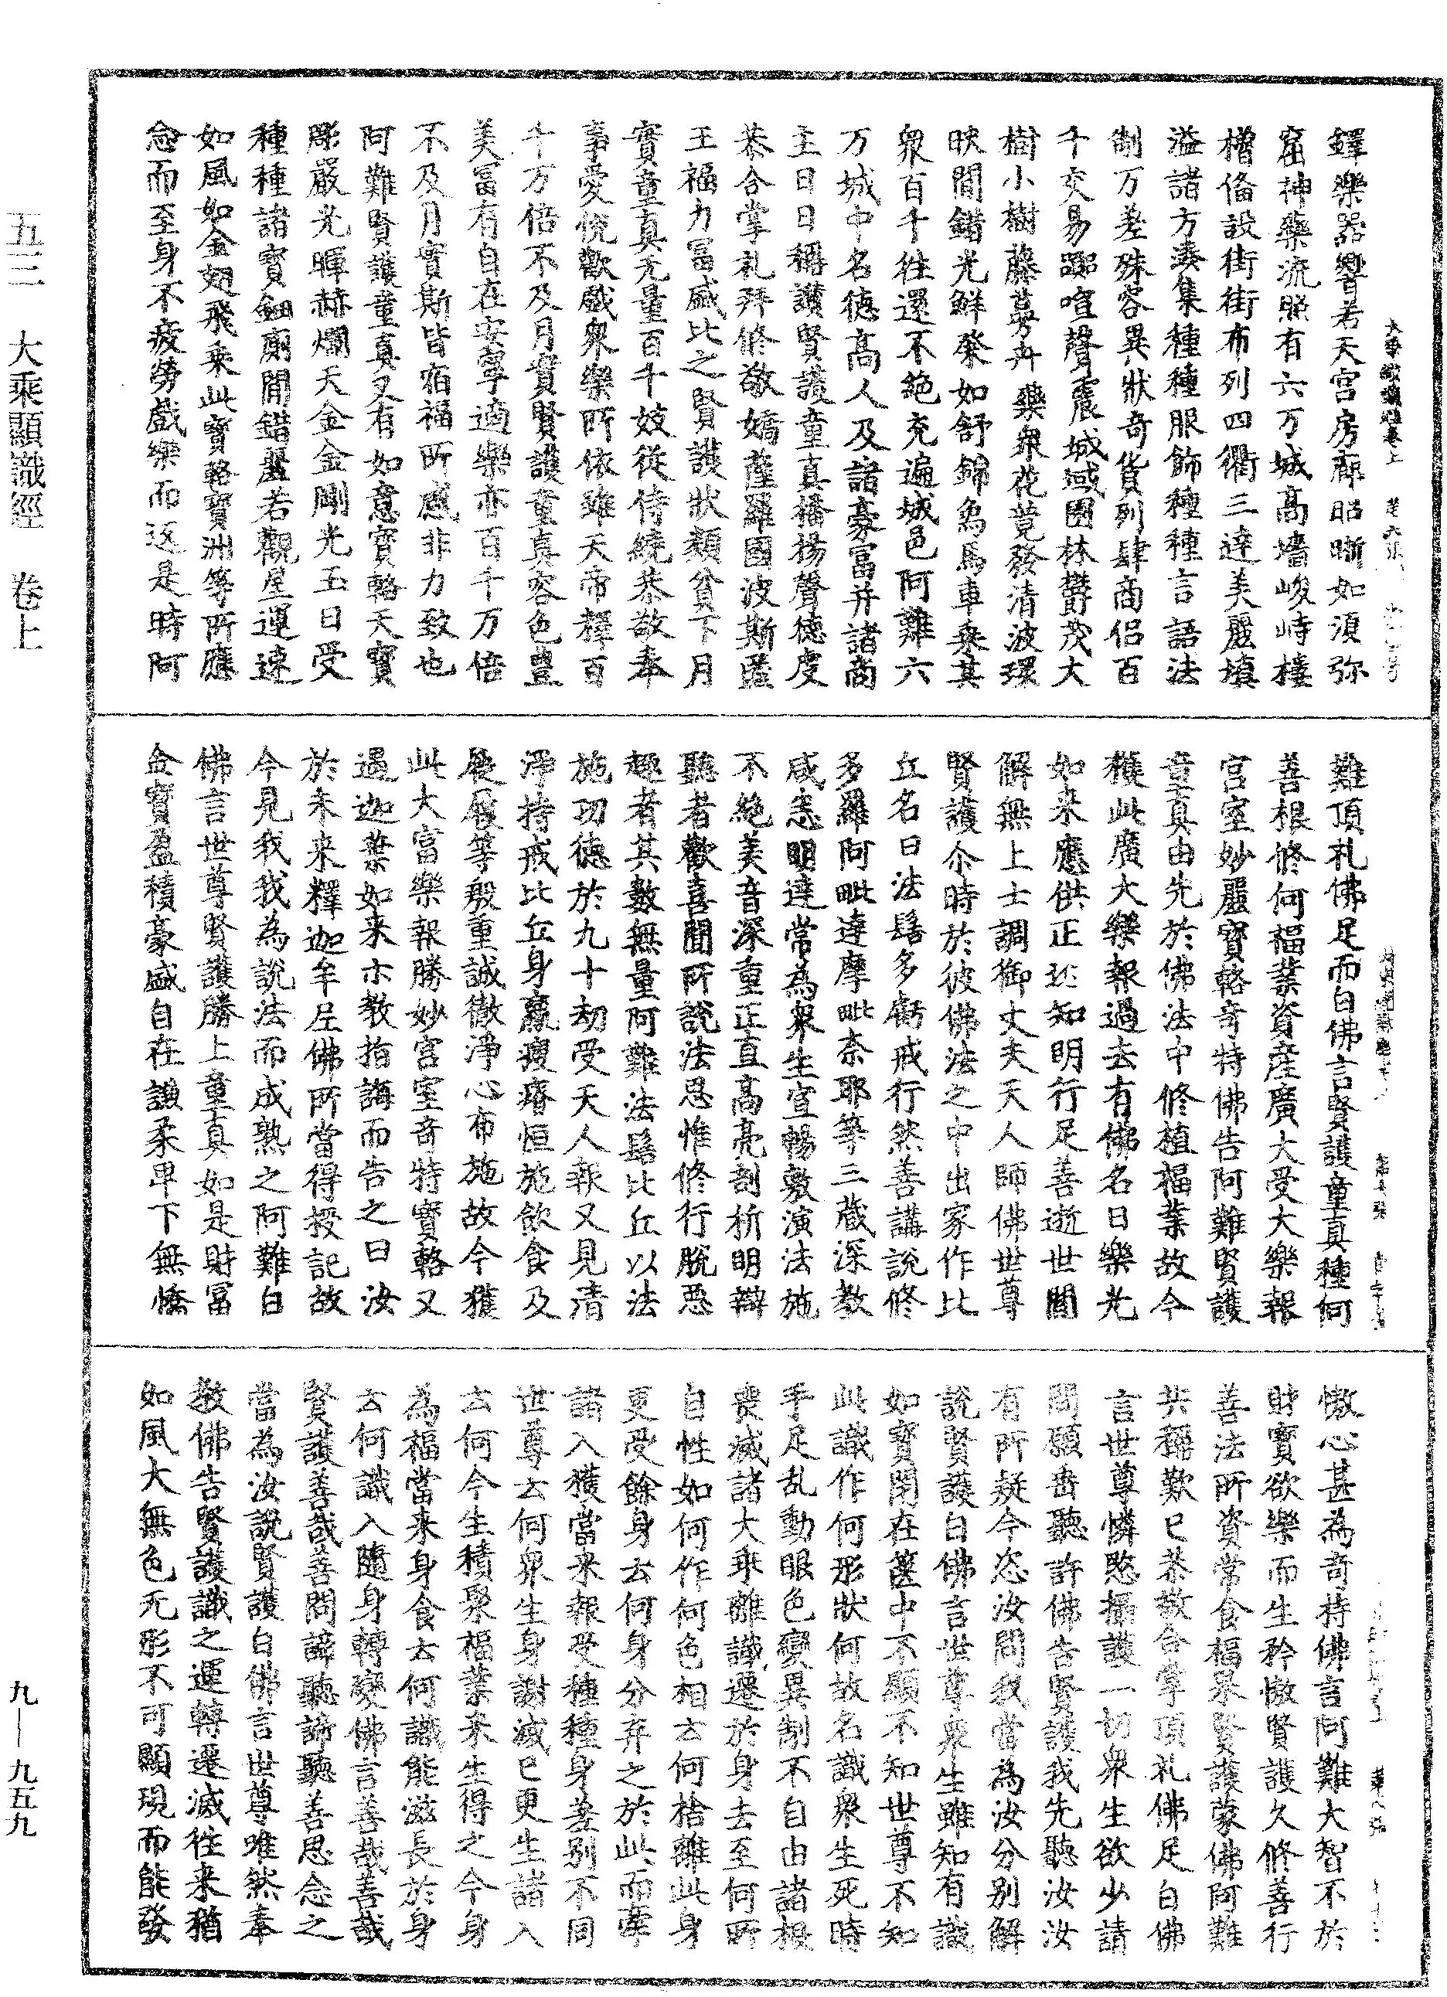 鐸樂器響若天宮房廊昭晰如須弥
窟神藥流照有六万城高墻峻峙樓
櫓俻設街街布列四衢三達美麗填
溢諸方湊集種種服飾種種言語法
制万差殊容異狀奇貨列肆商侶百
千交易諠聲震城域園林欝茂大
樹小樹藤蔓芳卉藥衆花竟發清波環
映間錯光鮮粲如舒錦象馬車乘其
衆百千往還不絶充遍城邑阿難六
万城中名德髙人及諸豪富并諸商
主日日稱讃賢護童真播揚聲德虔
恭合掌礼拜脩敬嬌薩羅國波斯匿
王福力冨盛比之賢護狀類貧下月
實童真无量百千妓從侍繞恭敬奉
事愛恱歡戲衆樂所依雖天帝釋百
千万倍不及月實賢護童真容色豊
美冨有自在安寧適樂亦百千万倍
不及月實斯皆宿福所感非力致也
阿難賢護童真又有如意寶輅天寶
彫嚴光暉赫爛天金金剛光玉日受
種種諸寶鈿廁間錯麗若觀星運速
如風如金翅飛乘此寶輅寶洲等所應
念而至身不疲勞戲樂而返是時阿
難頂礼佛足而白佛言賢護童真種何
善根修何福業資産廣大受大樂報
宮室妙麗寶輅奇特佛告阿難賢護
童真由先於佛法中修植福業故今
穫此廣大樂報過去有佛名曰樂光
如来應供正遍知明行足善逝世間
解無上士調御丈夫天人師佛世尊
賢護尒時於彼佛法之中出家作比
丘名曰法髻多虧戒行然善講説修
多羅阿毗達摩毗奈耶等三蔵深教
咸悉明達常為衆生宣暢敷演法施
不絶美音深重正直高亮剖析明辯
聽者歡喜聞所説法思惟修行脫惡
趣者其數無量阿難法髻比丘以法
施功德於九十劫受天人報又見清
淨持戒比丘身羸瘦瘠恒施飲食及
屣履等殷重誠徹淨心布施故今獲
此大富樂報勝妙宮室奇特寶輅又
遇迦葉如来示教指誨而告之曰汝
於未来釋迦牟尼佛所當得授記故
今見我我為説法而成熟之阿難白
佛言世尊賢護勝上童真如是財冨
金寶盈積豪盛自在謙柔卑下無憍
慠心甚為奇特佛言阿難大智不於
財寶欲樂而生矜慠賢護久修善行
善法所資常食福果賢護蒙佛阿難
共稱歎已恭敬合掌頂礼佛足白佛
言世尊憐愍攝護一切衆生欲少請
問願垂聽許佛告賢護我先聽汝汝
有所疑今恣汝問我當為汝分别解
説賢護白佛言世尊衆生雖知有識
如寶閉在篋中不顯不知世尊不知
此識作何形狀何故名識衆生死時
手足乱動眼色變異制不自由諸根
喪滅諸大乖離識遷於身去至何所
自性如何作何色相云何捨離此身
更受餘身云何身分弃之於此而牽
諸入獲當来報受種種身差别不同
世尊云何衆生身謝滅已更生諸入
云何今生積聚福業来生得之今身
為福當来身食云何識能滋長於身
云何識入隨身轉變佛言善哉善哉
賢護善哉善問諦聽諦聽善思念之
當為汝説賢護白佛言世尊唯然奉
教佛告賢護識之運轉遷滅往来猶
如風大無色无形不可顯現而能發
五三 大乘顯識經 卷上
九—九五九